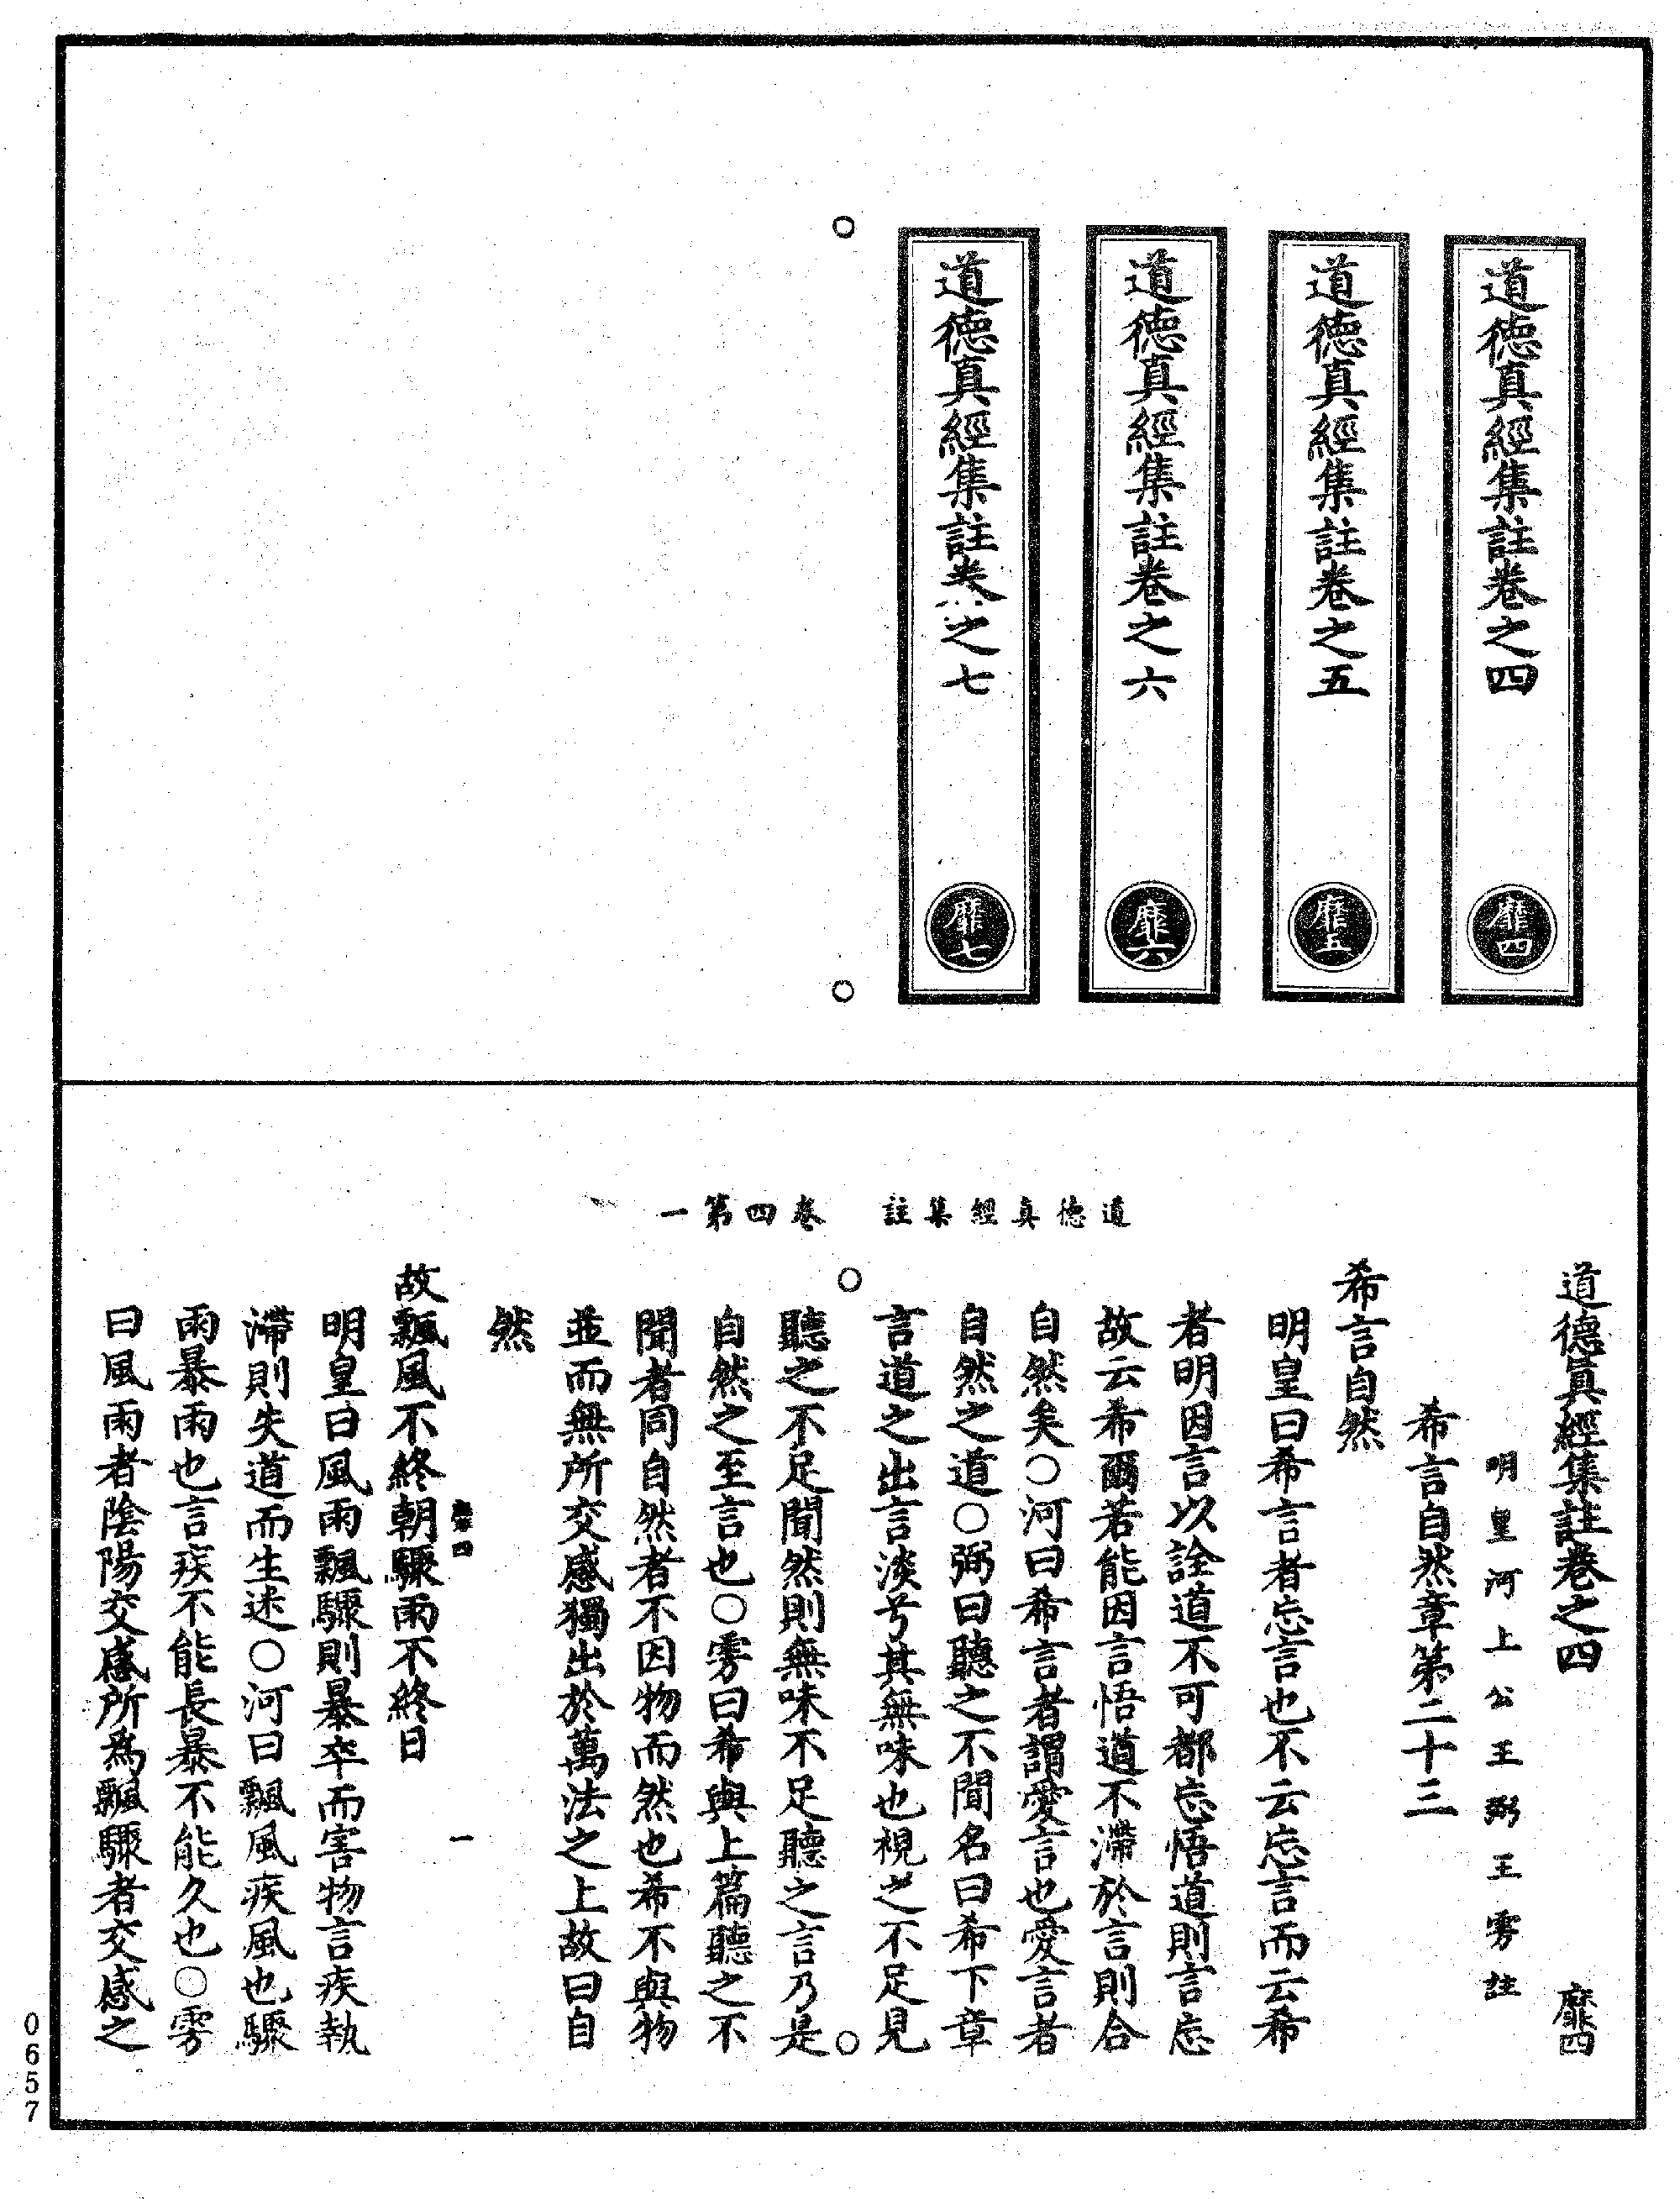 道德真經集註卷之四
靡四
道德真經集註卷之五
靡五
道德真經集註卷之六
靡六
道德真經集註卷之七
靡七
道德真經集註　卷四第一
道德真經集註卷之四　靡四
明皇河上公王弼王雱註
希言自然章第二十三
希言自然
明皇曰希言者忘言也不云忘言而云希
者明因言以詮道不可都忘悟道則言忘
故云希爾若能因言悟道不滯於言則合
自然矣○河曰希言者謂愛言也愛言者
自然之道○弼曰聽之不聞名曰希下章
言道之出言淡兮其無味也視之不足見
聽之不足聞然則無味不足聽之言乃是
自然之至言也○雱曰希與上篇聽之不
聞者同自然者不因物而然也希不與物
並而無所交感獨出於萬法之上故曰自
然
靡四　一
故飄風不終朝驟雨不終日
明皇曰風雨飄驟則暴卒而害物言疾執
滯則失道而生迷○河曰飄風疾風也驟
雨暴雨也言疾不能長暴不能久也○雱
曰風雨者陰陽交感所為飄驟者交感之
0657